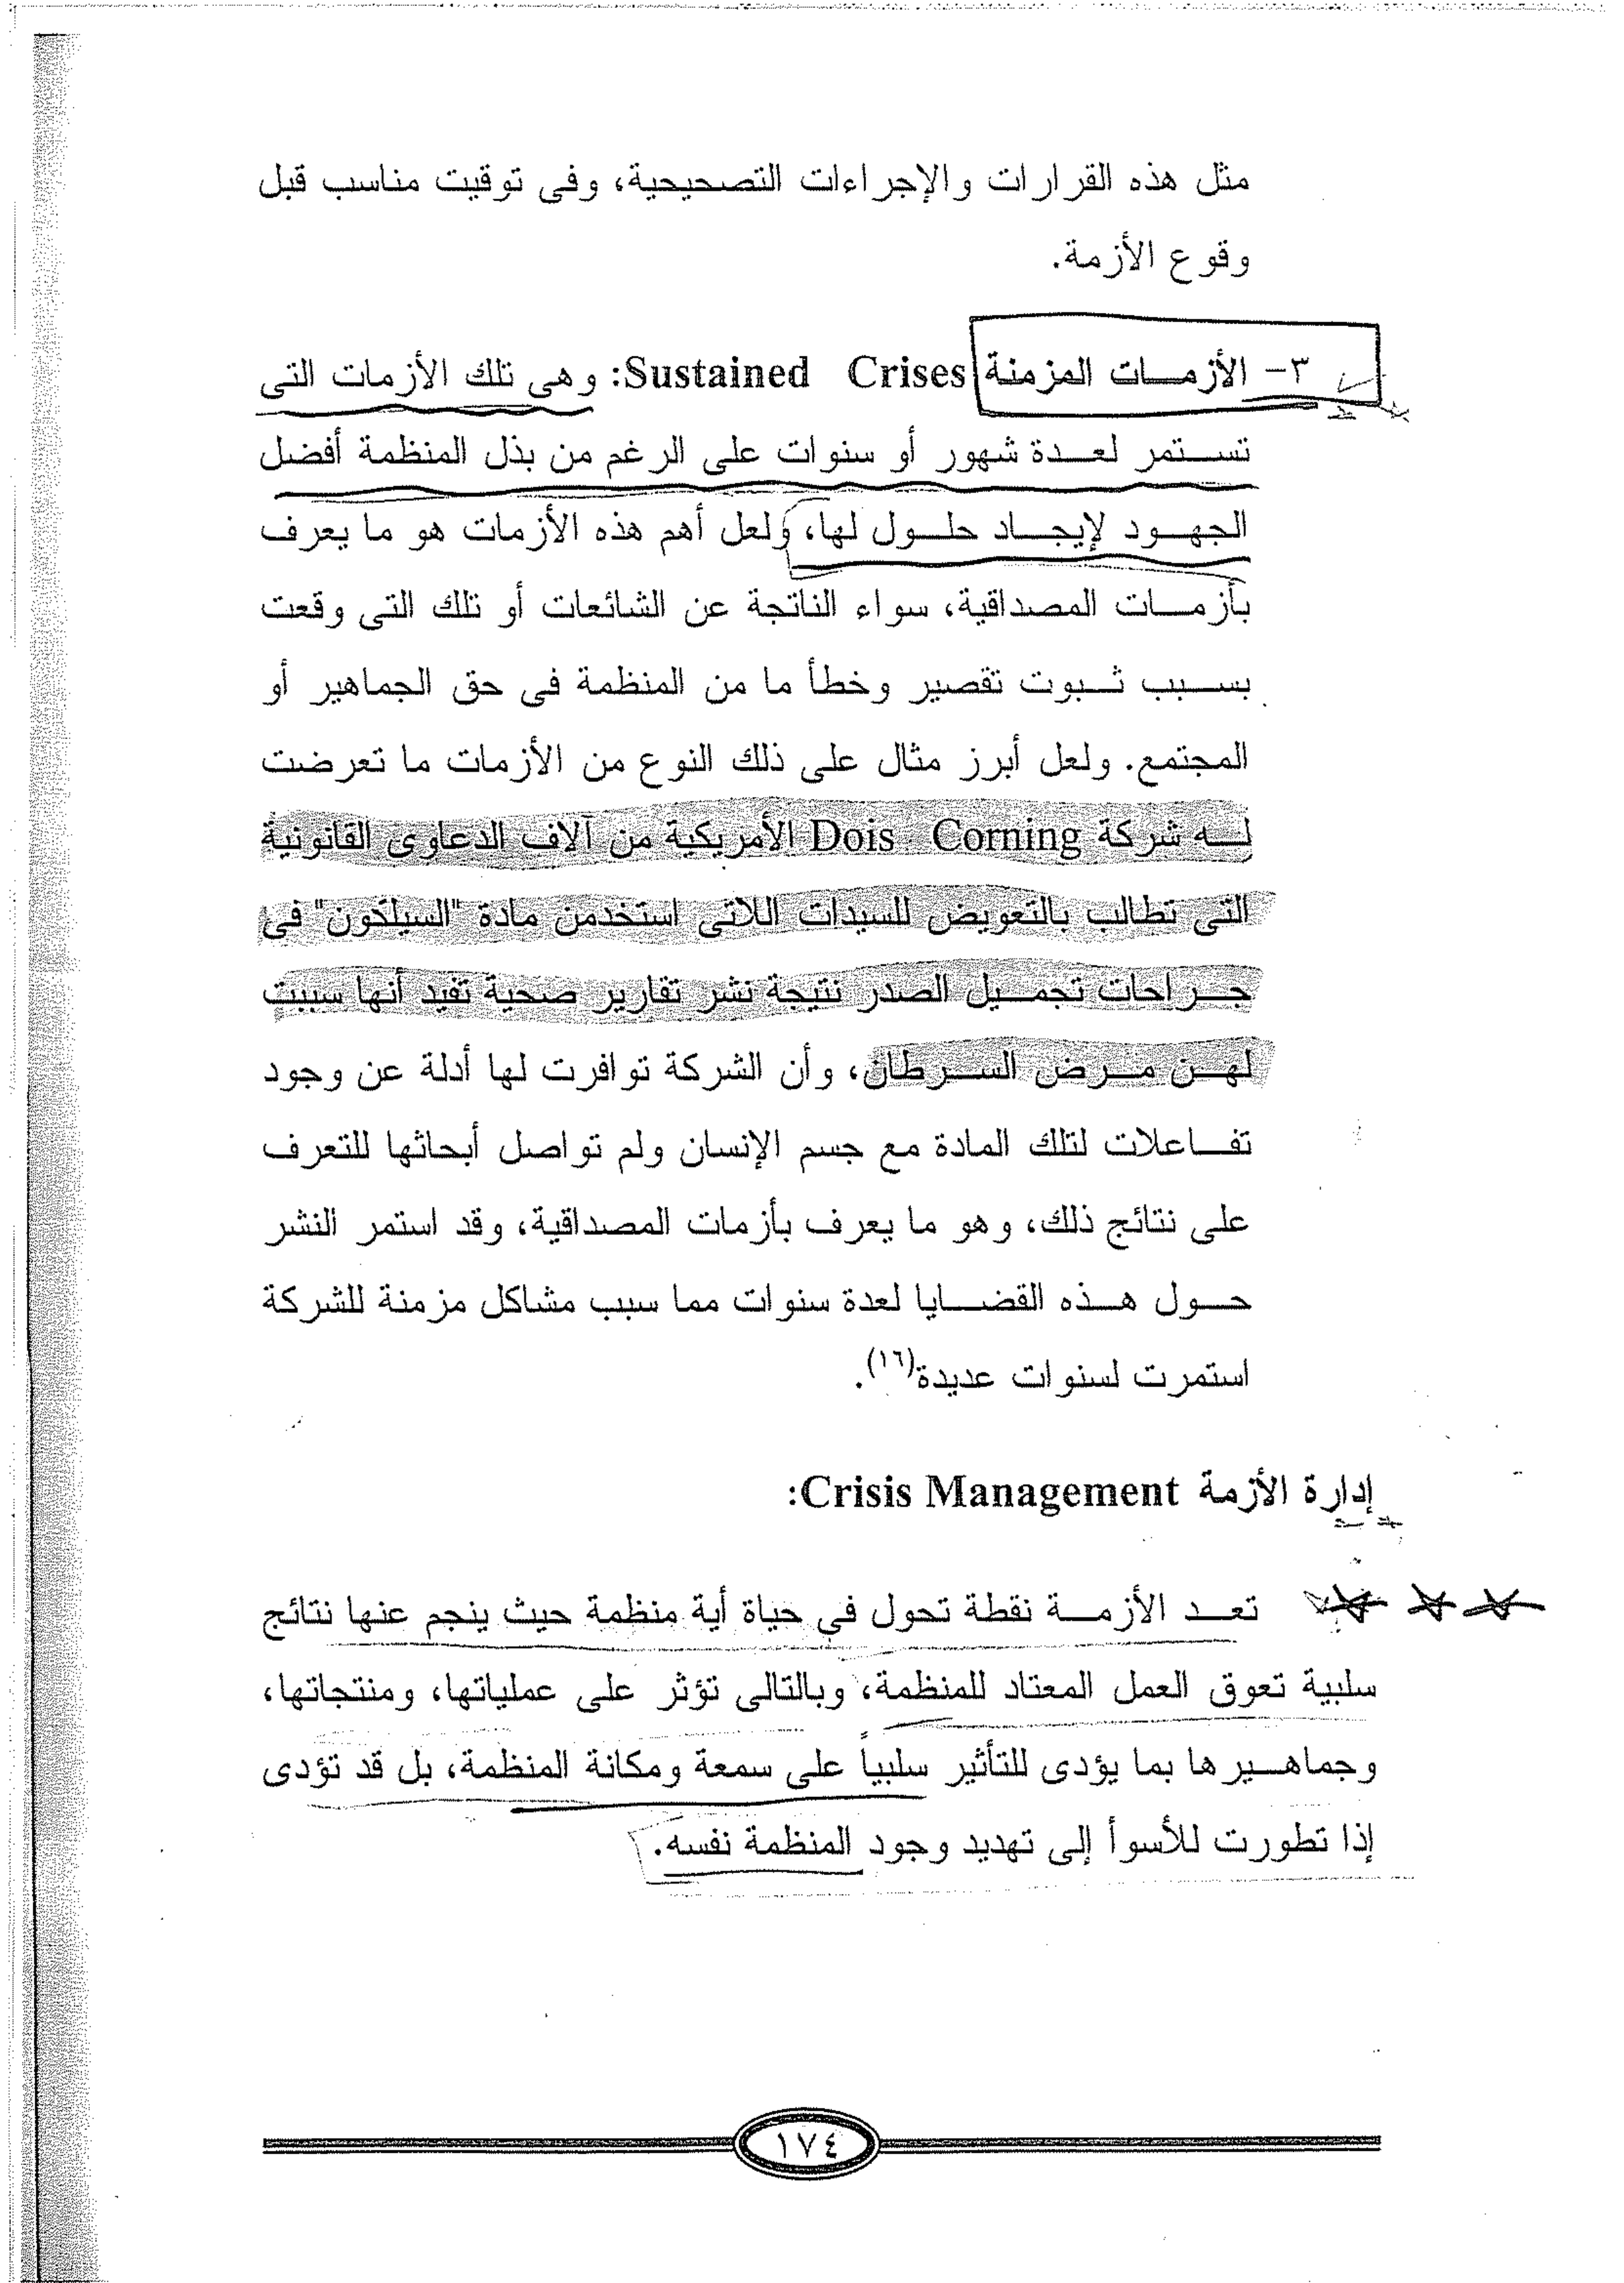 مثل هذه القرارات والإجراءات التصحيحية، وفى توقيت مناسب قبل
وقوع الأزمة.
٣- الأزمات المزمنة Sustained Crises: وهى تلك الأزمات التى
تستمر لعدة شهور أو سنوات على الرغم من بذل المنظمة أفضل
الجهود لإيجاد حلول لها، ولعل أهم هذه الأزمات هو ما يعرف
بأزمات المصداقية، سواء الناتجة عن الشائعات أو تلك التى وقعت
بسبب ثبوت تقصير وخطأ ما من المنظمة فى حق الجماهير أو
المجتمع. ولعل أبرز مثال على ذلك النوع من الأزمات ما تعرضت
له شركة Dois Corning الأمريكية من آلاف الدعاوى القانونية
التى تطالب بالتعويض للسيدات اللاتى استخدمن مادة "السيلكون" فى
جراحات تجميل الصدر نتيجة نشر تقارير صحية تفيد أنها سببت
لهن مرض السرطان، وأن الشركة توافرت لها أدلة عن وجود
تفاعلات لتلك المادة مع جسم الإنسان ولم تواصل أبحاثها للتعرف
على نتائج ذلك، وهو ما يعرف بأزمات المصداقية، وقد استمر النشر
حول هذه القضايا لعدة سنوات مما سبب مشاكل مزمنة للشركة
استمرت لسنوات عديدة(١٦).
إدارة الأزمة Crisis Management:
تعد الأزمة نقطة تحول فى حياة أية منظمة حيث ينجم عنها نتائج
سلبية تعوق العمل المعتاد للمنظمة، وبالتالى تؤثر على عملياتها، ومنتجاتها،
وجماهيرها بما يؤدى للتأثير سلبياً على سمعة ومكانة المنظمة، بل قد تؤدى
إذا تطورت للأسوأ إلى تهديد وجود المنظمة نفسه.
١٧٤